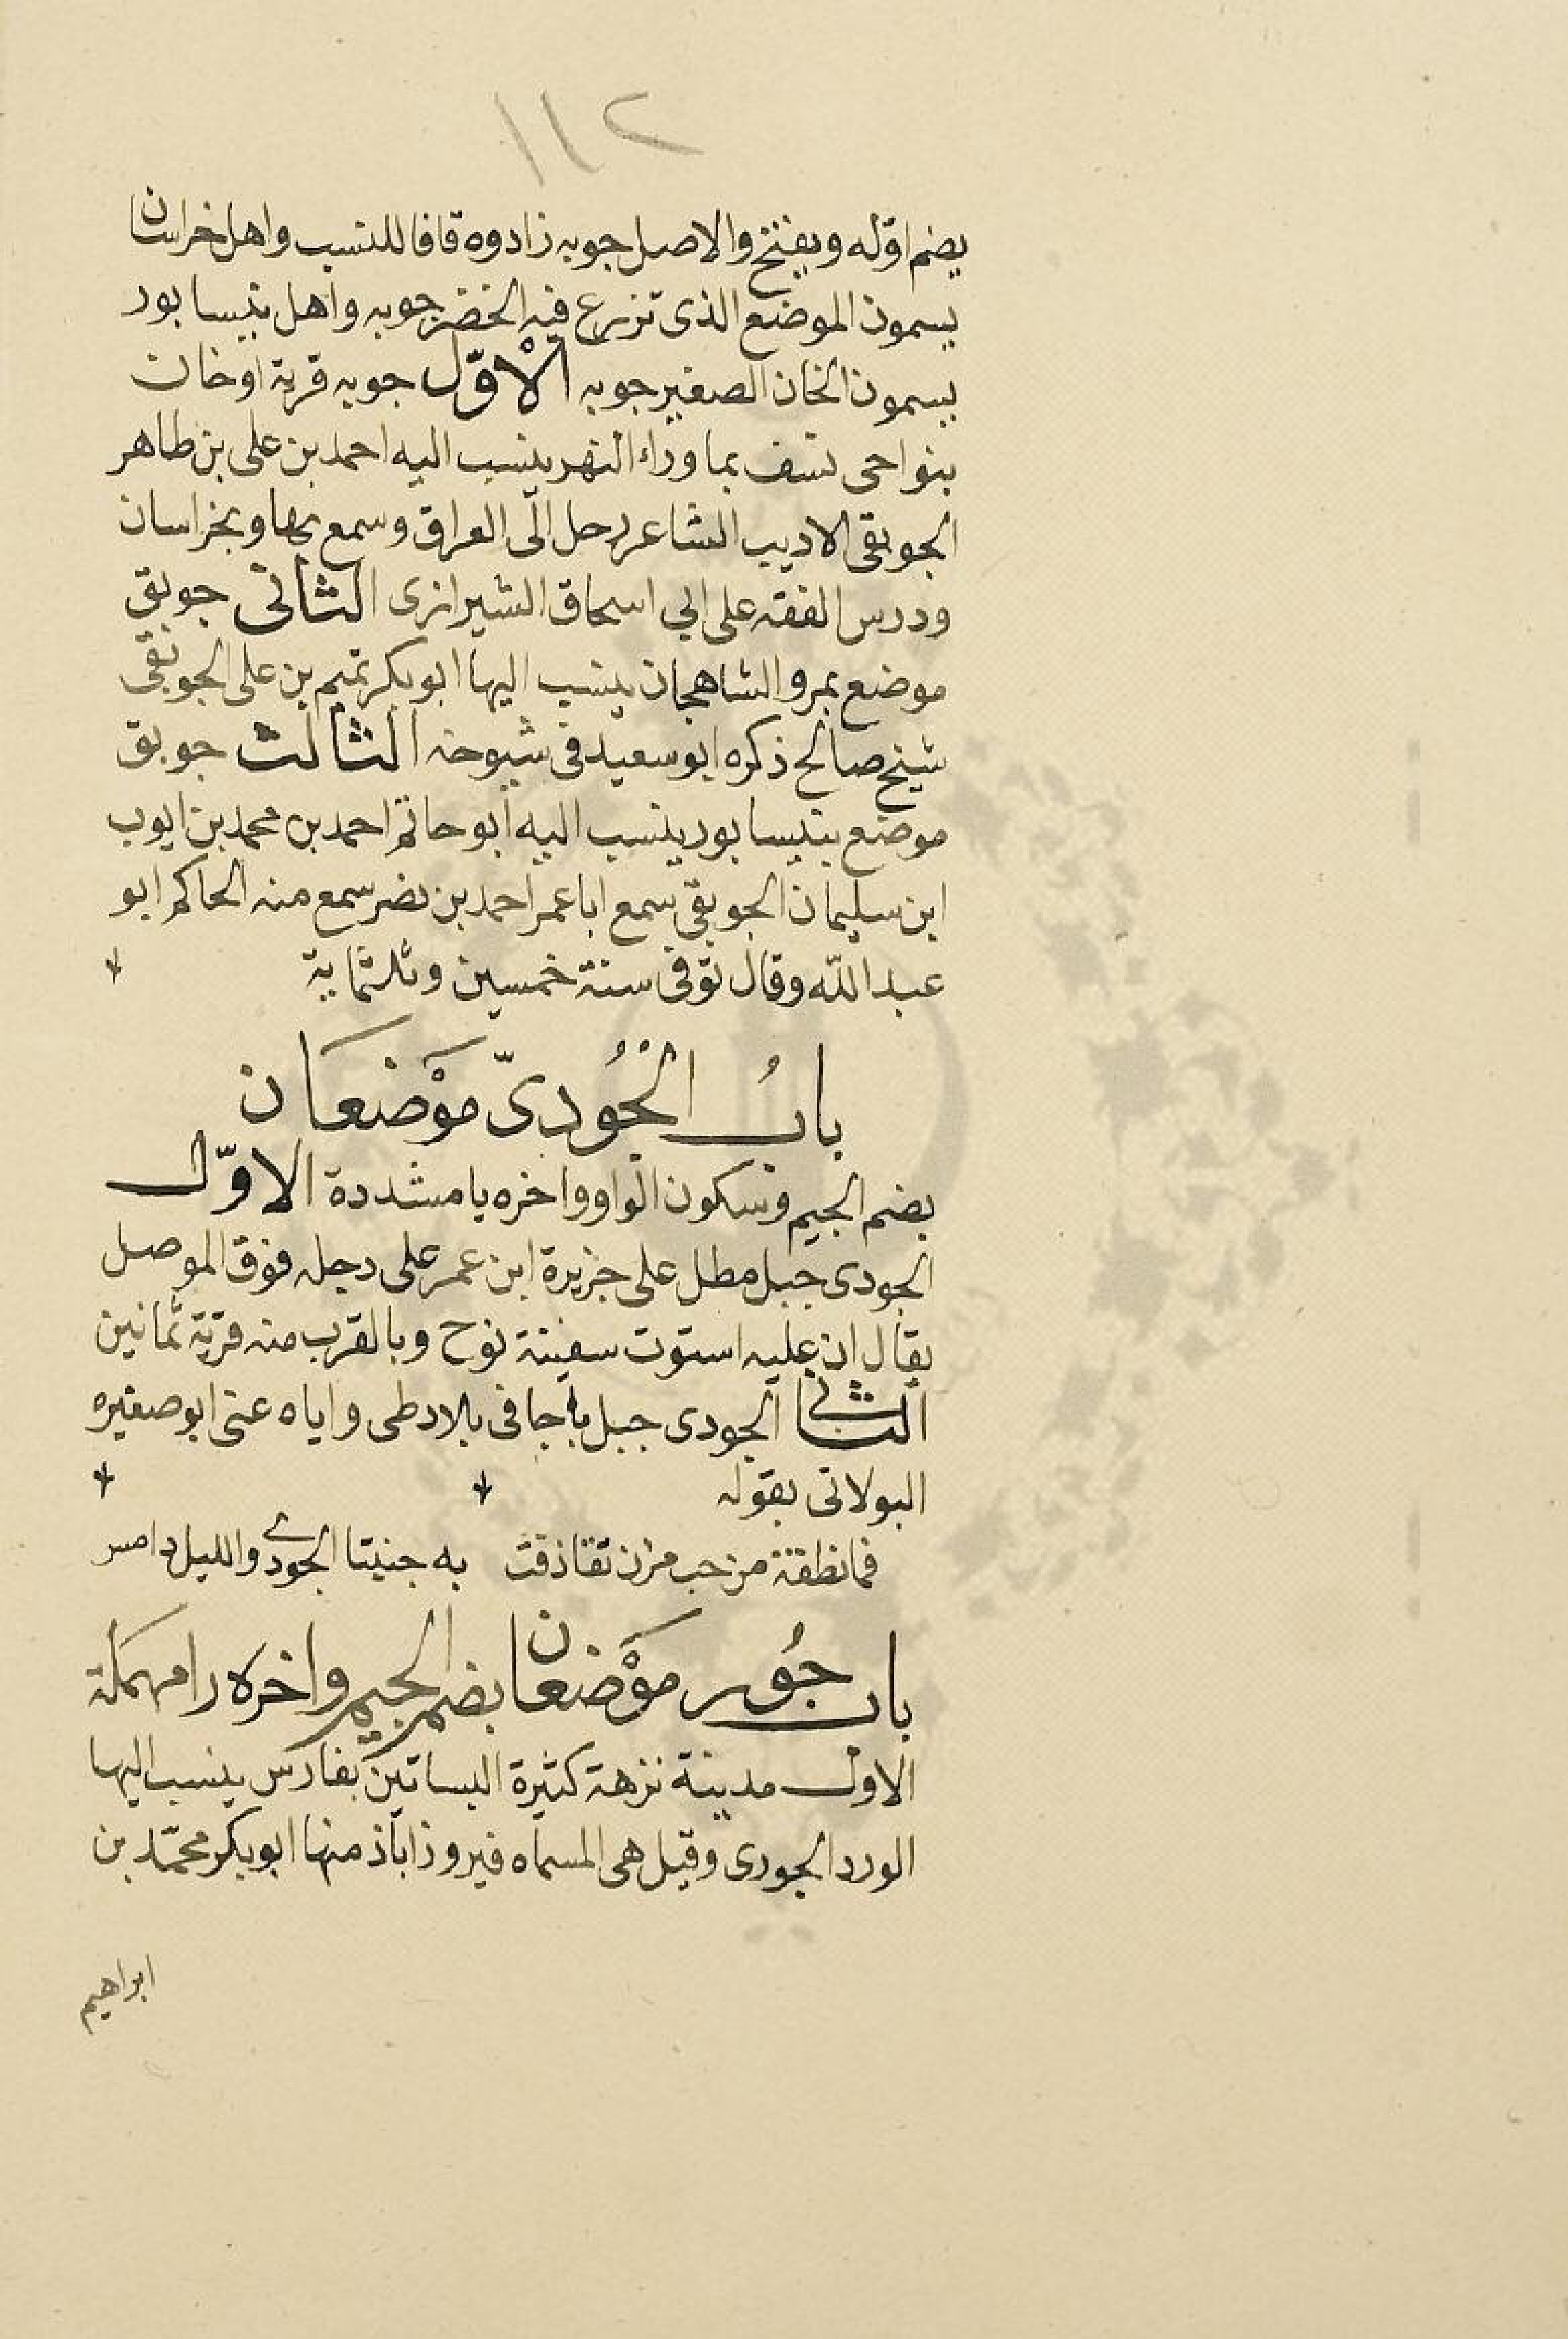 ١١٢
يضم اوّله ويفتح والاصل جوبه زادوه قافا للنسب واهل خراسان
يسمون الموضع الذى تزرع فيه الخضر جوبه واهل نيسابور
يسمون الخان الصغير جوبه الْاوّل جوبه قرية او خان
بنواحى نسف بما وراء النهر ينسب اليه احمد بن على بن طاهر
الجوبقى الاديب الشاعر رحل الى العراق وسمع بها وبخراسان
ودرس الفقه على ابي اسحاق الشيرازى الثانى جوبق
موضع بمرو الشاهجان ينسب اليها ابو بكر تميم بن على الجوبقى
شيخ صالح ذكره ابو سعيد فى شيوخه الثالث جوبق
موضع بنيسابور ينسب اليه ابو حاتم احمد بن محمد بن ايوب
ابن سليمان الجوبقى سمع ابا عمر احمد بن نصر سمع منه الحاكم ابو
عبد الله وقال توفى سنة خمسين وثلثماية
بابُ الْجُودىّ موْضعَان
بضم الجيم وسكون الواو واخره يا مشددة الاوّل
الجودى جبل مطل على جزيرة ابن عمر على دجله فوق الموصل
يقال ان عليه استوت سفينة نوح وبالقرب منه قرية ثمانين
الثانى الجودى جبل باجا فى بلاد طى واياه عنى ابو صغيره
البولانى بقوله
فما نطفة من حب مزن تقاذفت به جنبتا الجودى والليل دامس
باب جُور موْضعان بضم الجيم واخره را مهملة
الاول مدينة نزهة كثيرة البساتين بفارس ينسب اليها
الورد الجورى وقيل هى المسماه فيروزاباذ منها ابو بكر محمّد بن
ابراهيم